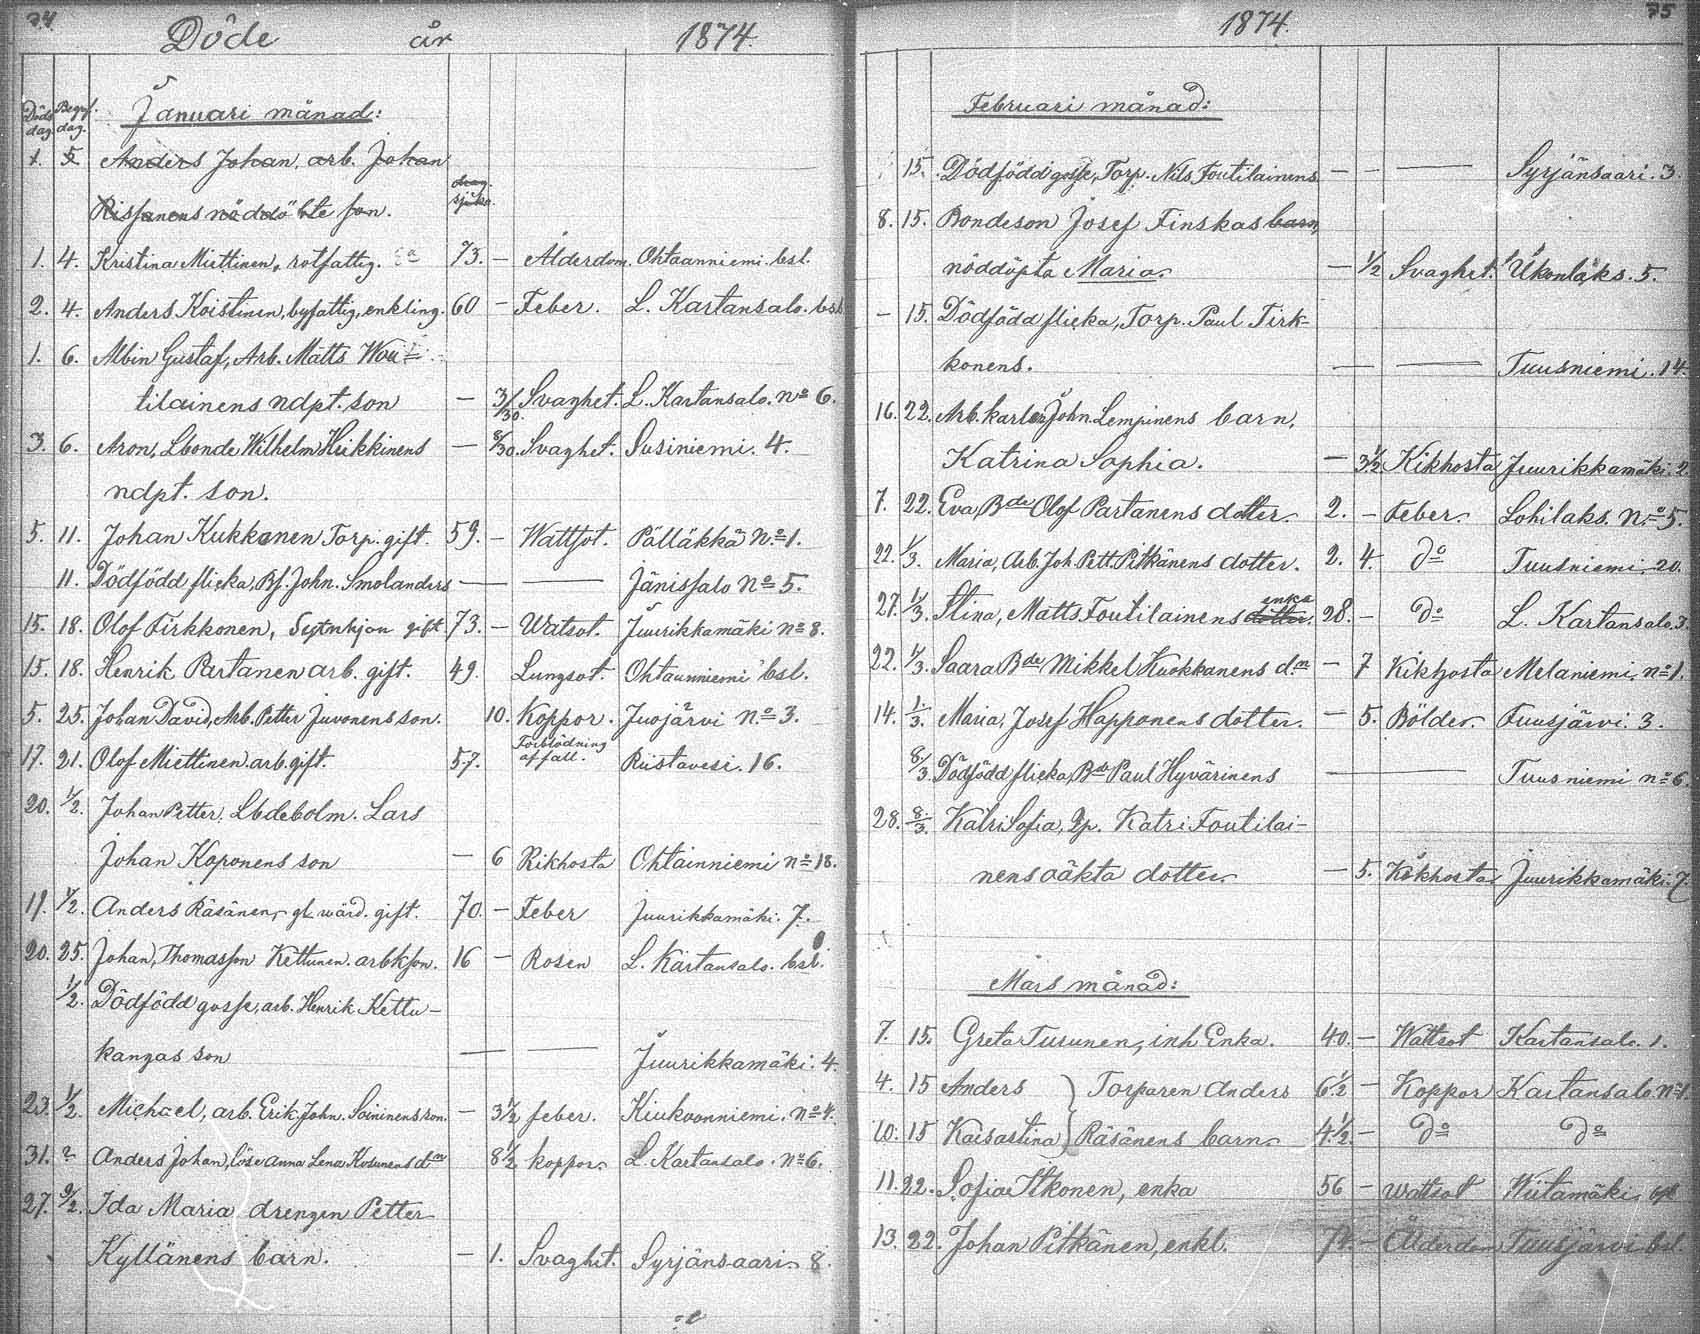 74 Döde år 1874.
Döds dag. Begrf. dag. Januari månad:
1. 5 Anders Johan, arb. Johan
Rissanens nöddöbte son. slag. sjuka.
1. 4. Kristina Miettinen, rotfattig. 73. — Ålderdom. Ohtaanniemi. bsl.
2. 4. Anders Koistinen, byfattig, enkling. 60 — Feber. L. Kartansalo. bsl
1. 6. Albin Gustaf, Arb. Matts Wou=
tilainens ndpt. son — 3/30. Svaghet. L. Kartansalo. No 6.
3. 6. Aron, Lbonde Wilhelm Heikkinens — 8/30. Svaghet. Susiniemi. 4.
ndpt. son.
5. 11. Johan Kukkonen Torp. gift. 59. — Wattsot. Pölläkkä No 1.
11. Dödfödd flicka, Bf. John. Smolanders — — Jänissalo No 5.
15. 18. Olof Tirkkonen, Sytnhjon gift 73. — Watsot. Juurikkamäki No 8.
15. 18. Henrik Partanen arb. gift. 49. Lungsot. Ohtaanniemi bsl.
5. 25. Johan David, Arb. Petter Juvonens son. 10. Koppor. Juojärvi No 3.
17. 21. Olof Miettinen. arb. gift. 57. Förblödning af fall. Riistavesi. 16.
20. 1/2. Johan Petter, Lbdebolm. Lars
Johan Koponens son — 6 Kikhosta Ohtainniemi No 18.
19. 1/2. Anders Räsänen, gl. wärd. gift. 70. — Feber Juurikkamäki. 7.
20. 25. Johan, Thomasson Kettunen. arbkson. 16 — Rosen L. Kartansalo. bsl.
1/2. Dödfödd gosse, arb. Henrik Kettu-
kangas son — — Juurikkamäki. 4.
23. 1/2. Michael, arb. Erik John. Soininens son. — 3 1/2 feber. Kiukoonniemi. No 4.
31. " Anders Johan, löse Anna Lena Kosunens 8 1/2 koppor. L. Kartansalo. No 6.
27. 9/2. Ida Maria drengen Petter
Kyllänens barn. — 1. Svaghet. Syrjänsaari 8.
1874. 75
Februari månad:
15. Dödfödd gosse, Torp. Nils Toutilainens — - — Syrjänsaari. 3.
8. 15. Bondeson Josef Finskas barn,
nöddöpta Maria. — 1/2 Svaghet. Ukonlaks. 5.
- 15. Dödfödd flicka, Torp. Paul Tirk-
konens. — — — Tuusniemi. 14.
16. 22. Arb. karlen John Lempinens barn,
Katrina Sophia. — 3 1/2 Kikhosta Juurikkamäki. 2.
7. 22. Eva, Bde Olof Partanens dotter. 2. — Feber. Lohilaks. No 5.
22. 1/3. Maria, Arb. Joh. Pett. Pitkänens dotter. 2. 4. do Tuusniemi. 20.
27. 1/3. Stina, Matts Toutilainens dotter. enka 28. — do L. Kartansalo. 3.
22. 1/3. Saara Bde Mikkel Kuokkanens d:n — 7 Kikhosta Melaniemi. No 1.
14. 1/3. Maria, Josef Happonens dotter. — 5. Bölder. Tuusjärvi. 3.
8/3. Dödfödd flicka, Bde Paul Hyvärinens — — Tuusniemi No 6.
28. 8/3. Katri Sofia, Katri Toutilai-
nens oäkta dotter. — 5. Kikhosta. Juurikkamäki. 7.
Mars månad:
7. 15. Greta Turunen, inh. Enka. 40. — Wattsot Kartansalo. 1.
4. 15 Anders } Torparen Anders 6 1/2 — Koppor Kartansalo No 1.
10. 15 Kaisastina } Räsänens barn. 4 1/2. — do do
11. 22. Sofia Itkonen, enka 56 — wattsot Wiitamäki
13. 22. Johan Pitkänen, enkl. — Ålderdom Tuusjärvi bsl.